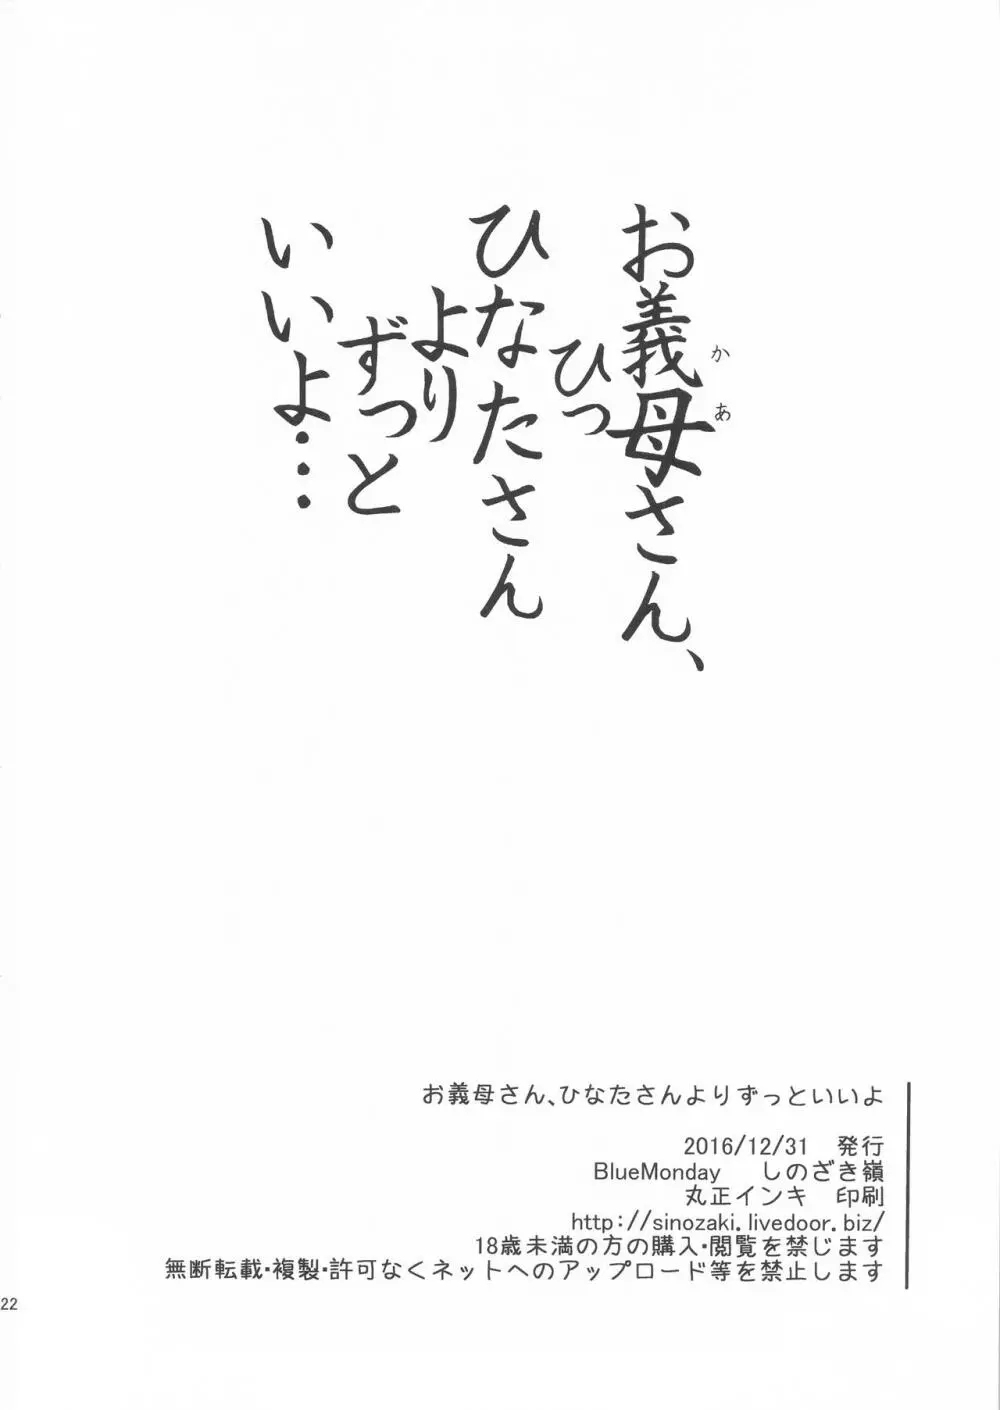 お義母さん、
かあ
ひっ
ひなたさん
より
ずっと
いいよ…
お義母さん、ひなたさんよりずっといいよ
2016/12/31 発行
BlueMonday しのざき嶺
丸正インキ 印刷
http://sinozaki.livedoor.biz/
18歳未満の方の購入・閲覧を禁じます
無断転載・複製・許可なくネットへのアップロード等を禁止します
22